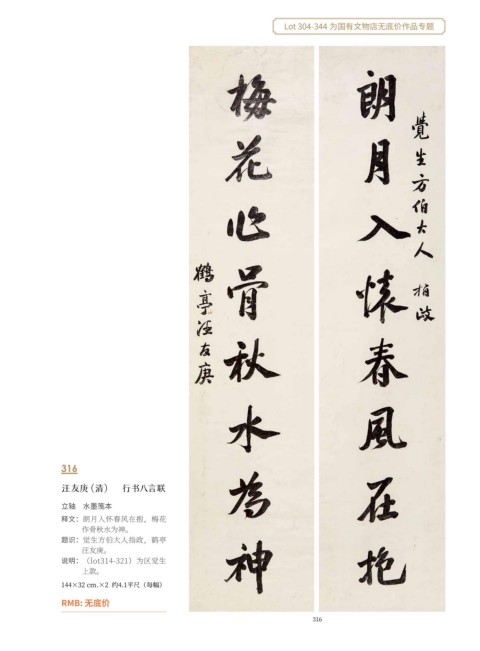 Lot 304-344 为国有文物店无底价作品专题
覺生方伯大人 指政
朗月入懷春風在抱
梅花作骨秋水為神
鶴亭汪友庚
316
汪友庚（清） 行书八言联
立轴 水墨笺本
释文：朗月入怀春风在抱，梅花
作骨秋水为神。
题识：觉生方伯大人指政，鹤亭
汪友庚。
说明：（lot314-321）为区觉生
上款。
144×32 cm.×2 约4.1平尺（每幅）
RMB: 无底价
316